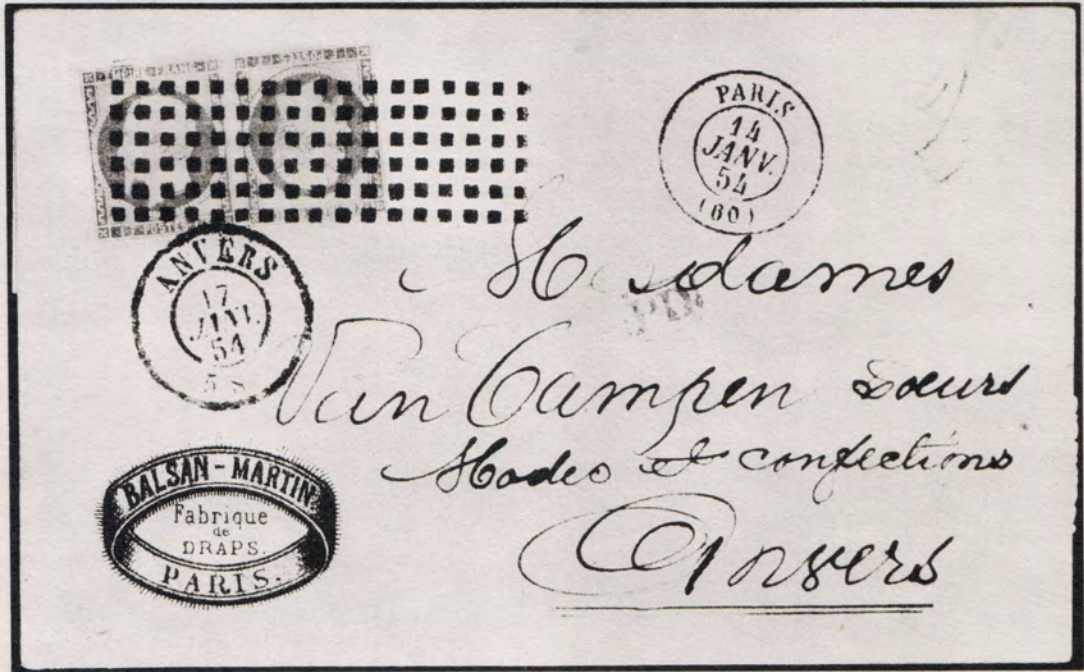 EMPIRE FRANC
POSTES
PARIS
14
JANV.
54
(60)
ANVERS
17
JANV.
54
5 S
Mesdames
PD
Van Campen Soeurs
Modes et confections
Anvers
BALSAN-MARTIN
Fabrique
de
DRAPS.
PARIS.